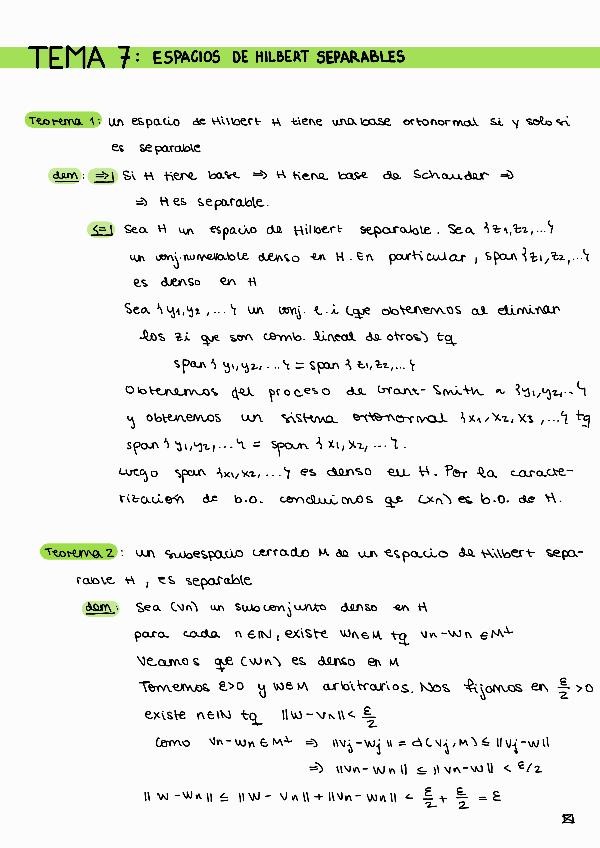 TEMA 7: ESPACIOS DE HILBERT SEPARABLES
Teorema 1: un espacio de Hilbert H tiene una base ortonormal si y solo si
es separable
dem: ⇒| Si H tiene base ⇒ H tiene base de Schauder ⇒
⇒ H es separable.
⇐| Sea H un espacio de Hilbert separable. Sea {z1,z2,...}
un conj. numerable denso en H. En particular, span{z1,z2,...}
es denso en H
Sea {y1,y2,...} un conj. l.i (que obtenemos al eliminar
los zi que son comb. lineal de otros) tq
span{y1,y2,...} = span{z1,z2,...}
Obtenemos del proceso de Grant-Smith a {y1,y2,...}
y obtenemos un sistema ortonormal {x1,x2,x3,...} tq
span{y1,y2,...} = span{x1,x2,...}.
Luego span{x1,x2,...} es denso en H. Por la caracte-
rización de b.o. concluimos que (xn) es b.o. de H.
Teorema 2: un subespacio cerrado M de un espacio de Hilbert sepa-
rable H, es separable
dem: Sea (vn) un subconjunto denso en H
para cada n∈ℕ, existe wn∈M tq vn-wn ∈M⊥
Veamos que (wn) es denso en M
Tomemos ε>0 y w∈M arbitrarios. Nos fijamos en ε/2 >0
existe n∈ℕ tq ||w-vn||< ε/2
como vn-wn∈M⊥ ⇒ ||vj-wj|| = d(vj,M) ≤ ||vj-w||
⇒ ||vn-wn|| ≤ ||vn-w|| < ε/2
||w-wn|| ≤ ||w-vn||+||vn-wn|| < ε/2 + ε/2 = ε